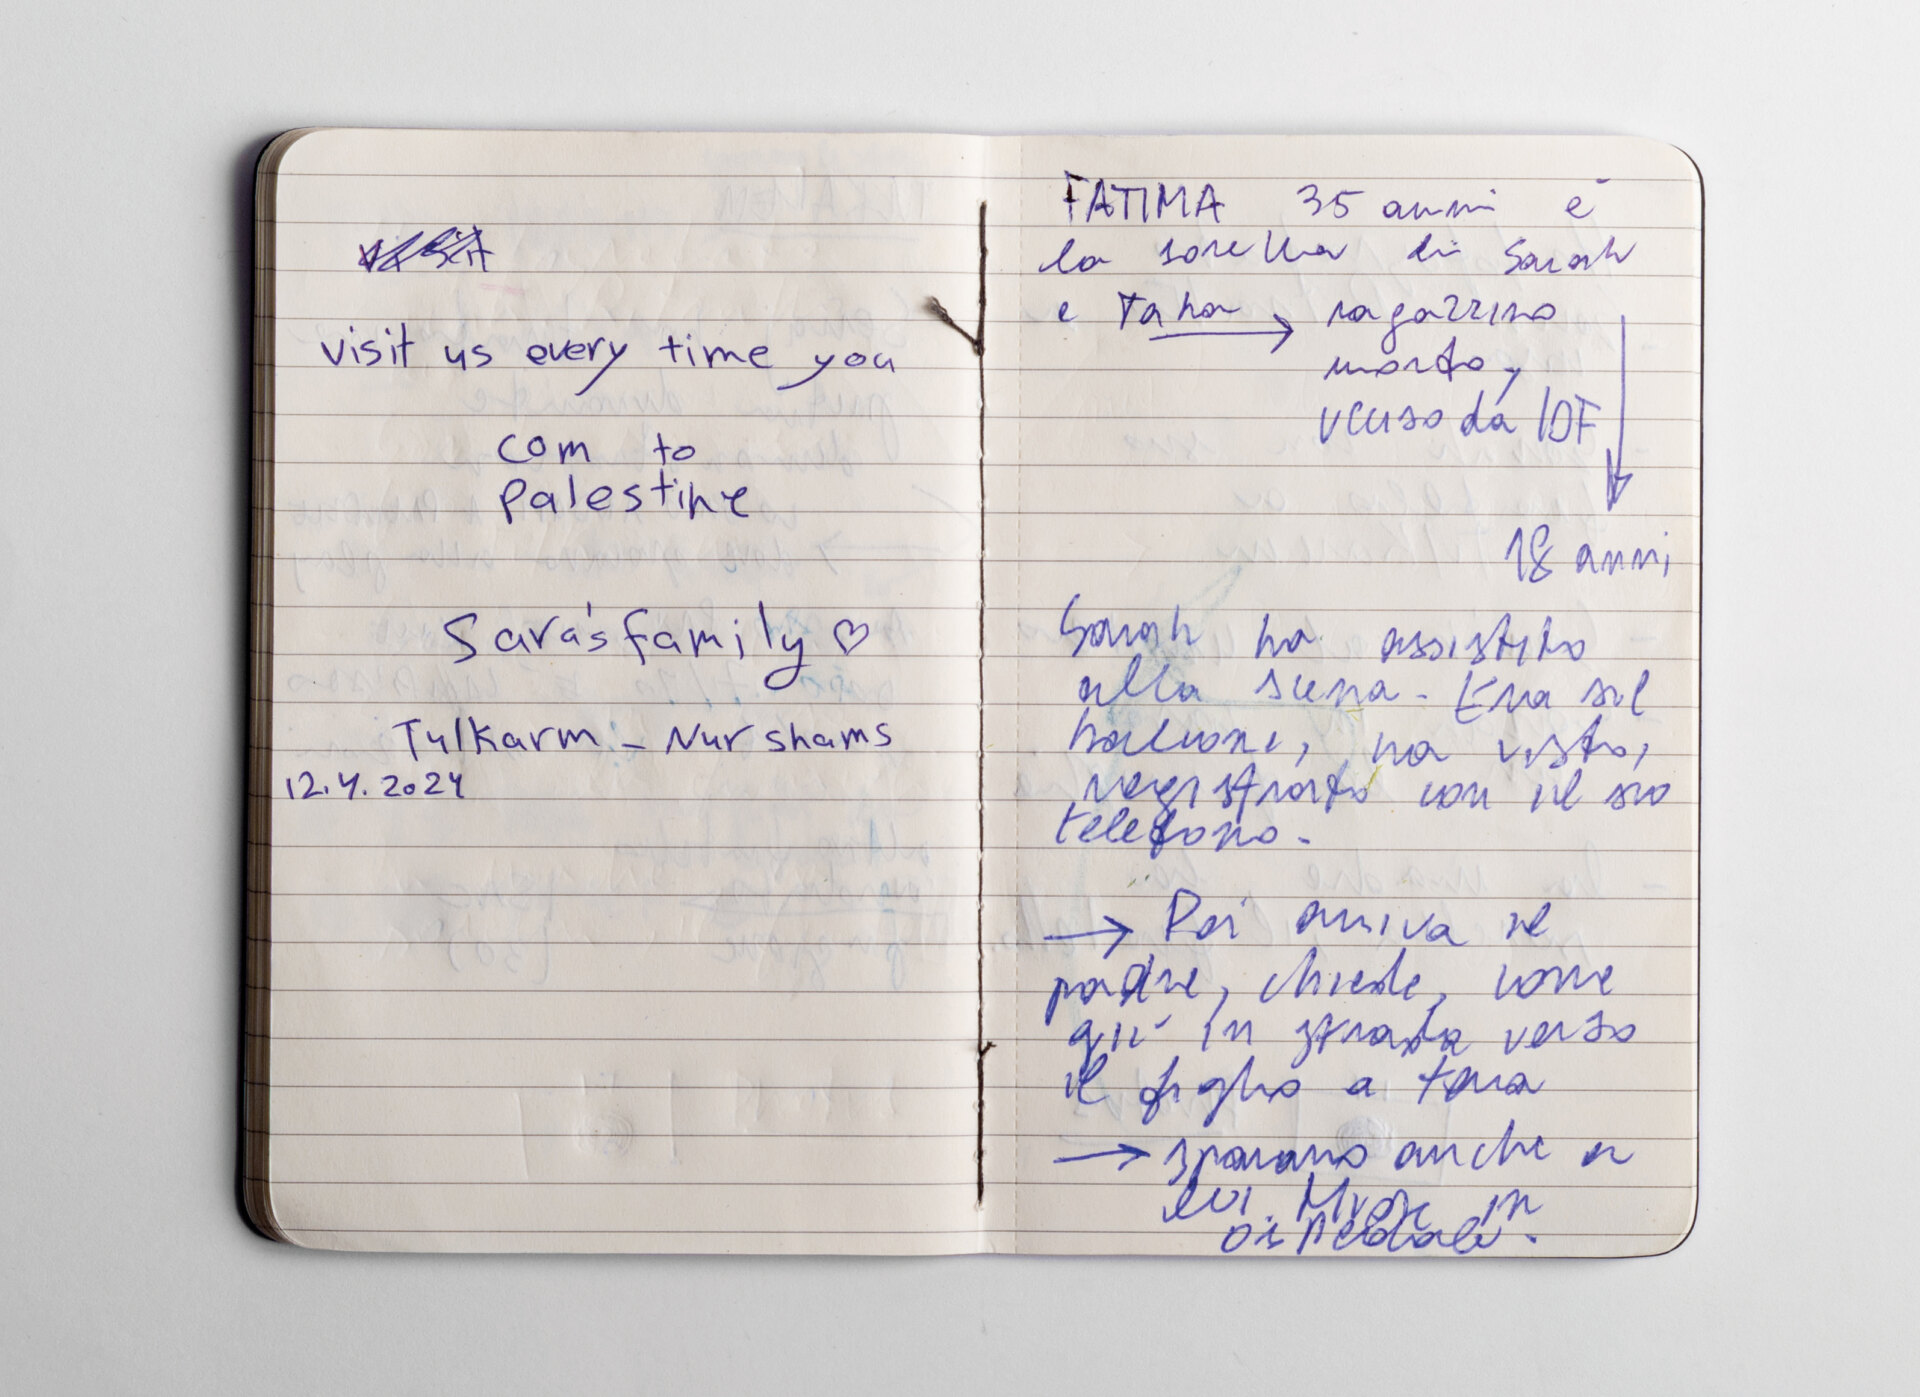 visit us every time you
com to
palestine
Sara's family ♡
Tulkarm - Nur shams
12.4.2024
FATIMA 35 anni è
la sorella di Sarah
e Taha → ragazzino
morto,
ucciso da IDF
18 anni
Sarah ha assistito
alla scena. Era sul
balcone, ha visto,
registrato con il suo
telefono.
→ Poi arriva il
padre, chiede, corre
giù in strada verso
il figlio a terra
→ sparano anche a
lui. Muore in
ospedale.